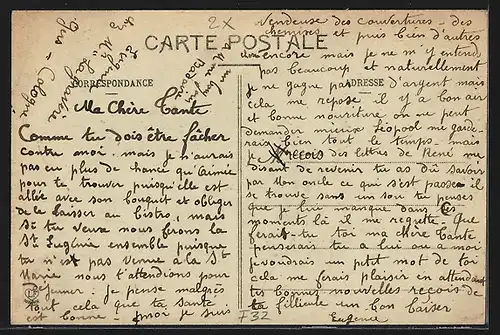 2X
CARTE POSTALE
CORRESPONDANCE
ADRESSE
Ma Chère Tante
Comme tu dois être fâcher
contre moi. mais je n'aurais
pas eu plus de chance qu'Aimée
pour te trouver puisqu'elle est
allée avec son bouquit et obliger
de le laisser au bistro, mais
Si tu veux nous ferons la
Ste Eugénie ensemble puisque
tu n'est pas venue à la Ste
Marie nous t'attendions pour
déjeuner. je pense malgrès
tout cela que ta santé
est bonne moi je suis
Vendeuse des couvertures - des
chemises et puis bien d'autres
encore mais je ne m'y entends
pas beaucoup et naturellement
je ne gagne pas d'argent mais
cela me repose il y a bon air
et bonne nourriture on ne peut
demander mieux Léopool me garde-
rais bien tout le temps - mais
je reçois des lettres de René me
disant de revenir tu as dû savoir
par Mon oncle ce qui s'est passé il
se trouve sans un sou tu penses
que je lui manque dans ces
moments là il me regrette. Que
ferait-tu toi ma Chère Tante
penserais tu a lui ou a moi
je voudrais un petit mot de toi
cela me ferais plaisir en attendant
tes bonnes nouvelles reçois de
ta filleule un bon baiser
Eugenie
F32